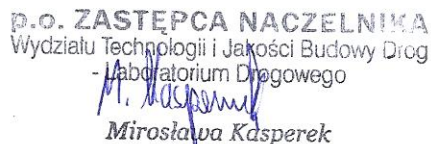 p.o. ZASTĘPCA NACZELNIKA
Wydziału Technologii i Jakości Budowy Dróg
- Laboratorium Drogowego
M. Kasperek
Mirosława Kasperek